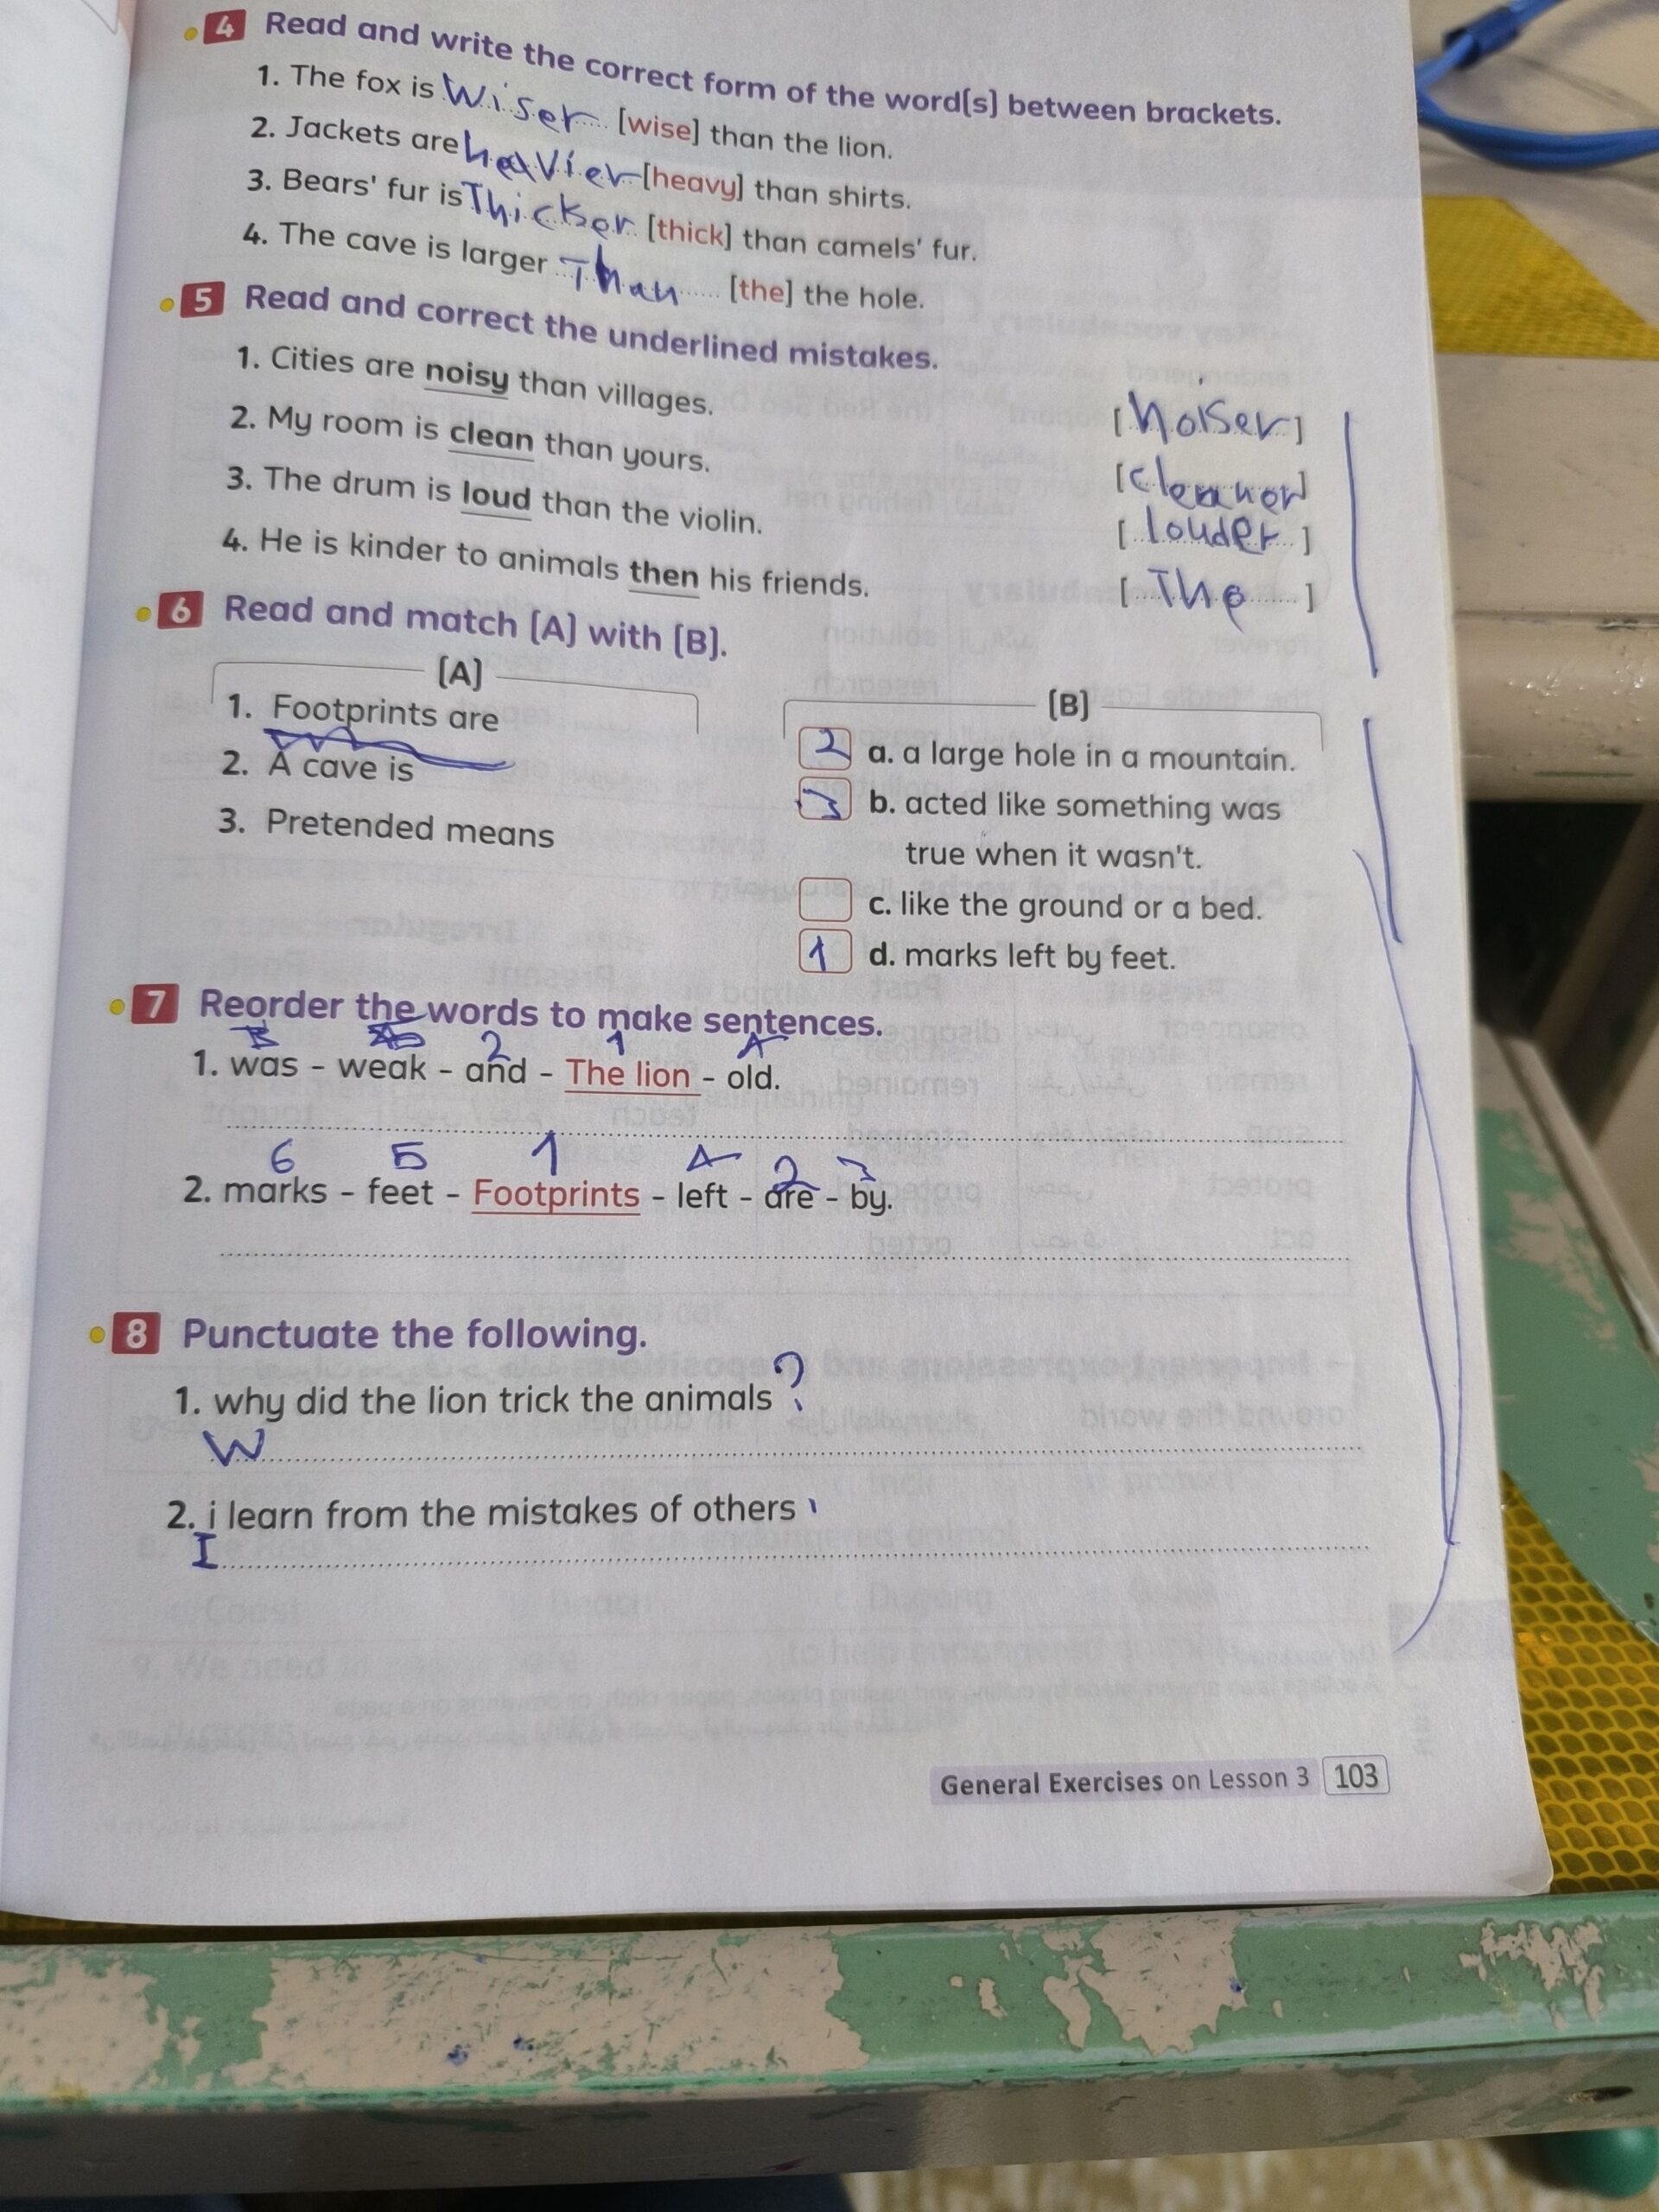 4 Read and write the correct form of the word(s) between brackets.
1. The fox is Wiser [wise] than the lion.
2. Jackets are heavier [heavy] than shirts.
3. Bears' fur is Thicker [thick] than camels' fur.
4. The cave is larger Than [the] the hole.
5 Read and correct the underlined mistakes.
1. Cities are noisy than villages. [noiser]
2. My room is clean than yours. [cleaner]
3. The drum is loud than the violin. [louder]
4. He is kinder to animals then his friends. [The]
6 Read and match (A) with (B).
(A)
1. Footprints are
2. A cave is
3. Pretended means
(B)
2 a. a large hole in a mountain.
3 b. acted like something was
true when it wasn't.
c. like the ground or a bed.
1 d. marks left by feet.
7 Reorder the words to make sentences.
2 1 4
1. was - weak - and - The lion - old.
6 5 1 4 2 3
2. marks - feet - Footprints - left - are - by.
8 Punctuate the following.
1. why did the lion trick the animals ?
W
2. i learn from the mistakes of others
I
General Exercises on Lesson 3 103